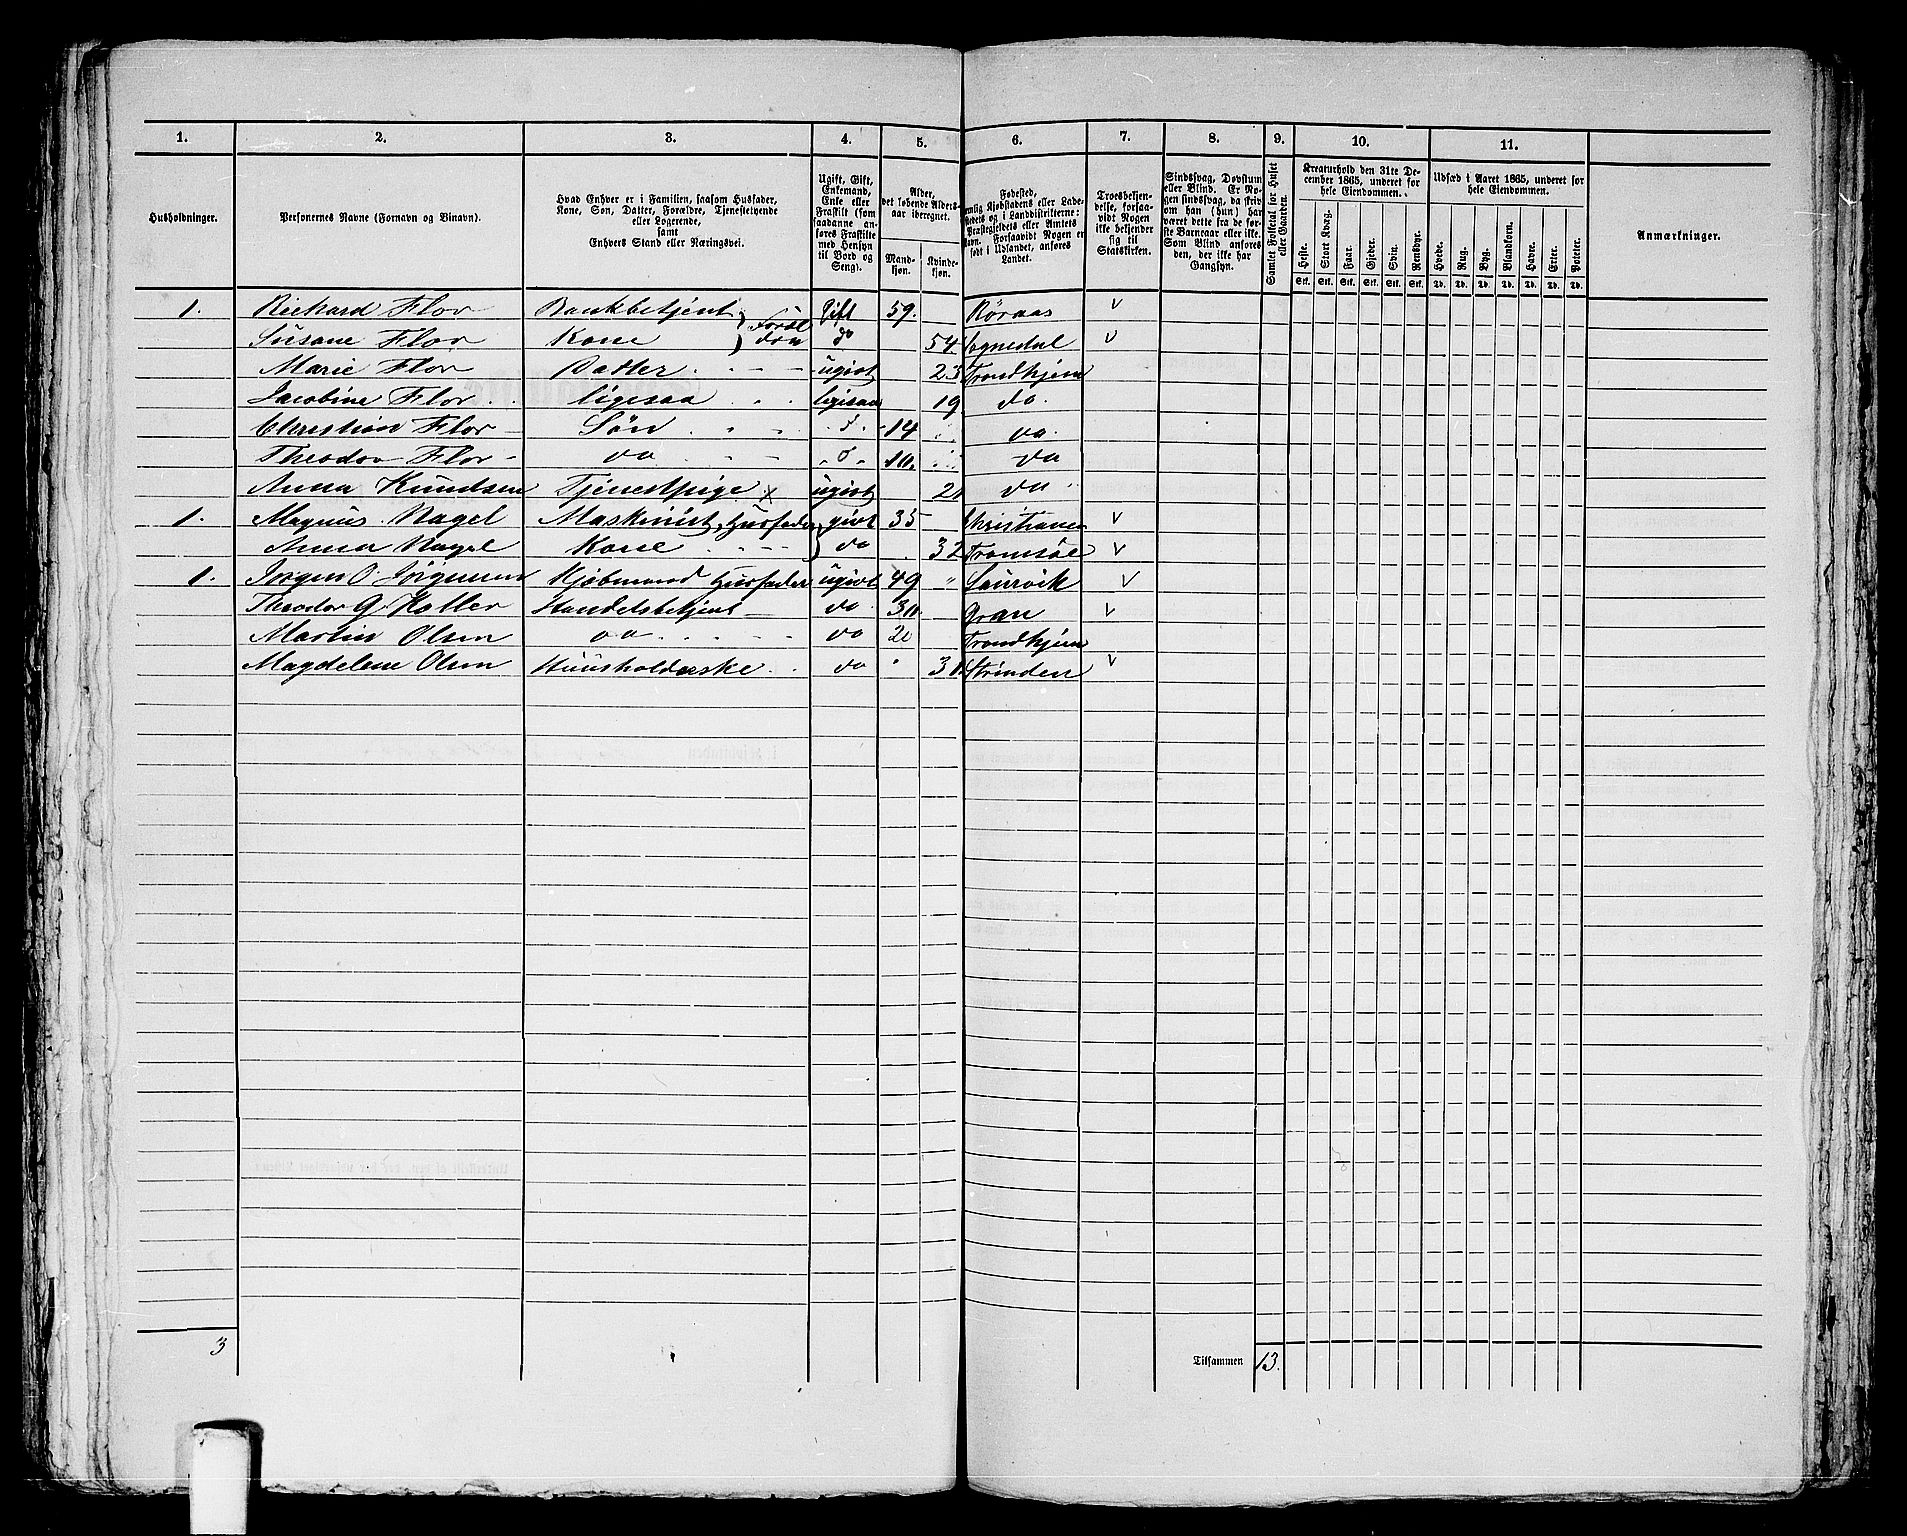 1. 2. 3. 4. 5. 6. 7. 8. 9. 10. 11.
Husholdninger.
Personernes Navne (Fornavn og Binavn).
Hvad Enhver er i Familien, saasom Husfader,
Kone, Søn, Datter, Forældre, Tjenestetyende
eller Logerende,
samt
Enhvers Stand eller Næringsvei.
Ugift, Gift,
Enkemand,
Enke eller
Fraskilt (som
saadanne an-
føres Fraskilte
med Hensyn
til Bord og
Seng).
Alder,
det løbende Alders-
aar iberegnet.
Mand-
kjøn.
Kvinde-
kjøn.
Fødested,
Landet.
Troesbekjen-
delse, forsaa-
vidt Nogen
ikke bekjender
sig til
Statskirken.
Sindssvag, Døvstum
eller Blind. Er No-
gen sindssvag, da skriv
om han (hun) har
været dette fra de før-
ste Barneaar eller ikke.
Som Blind anføres
den, der ikke har
Gangsyn.
Samlet Folketal for Huset
eller Gaarden.
Kreaturhold den 31te De-
cember 1865, underet for
hele Eiendommen.
Heste. Stort Kvæg. Faar. Gjeder. Svin. Rensdyr.
Stk. Stk. Stk. Stk. Stk. Stk.
Udsæd i Aaret 1865, underet for
hele Eiendommen.
Hvede. Rug. Byg. Blandkorn. Havre. Erter. Poteter.
Td. Td. Td. Td. Td. Td. Td.
Anmærkninger.
1. Richard Flor Bankbetjent Gift 59. Röraas v
Susane Flor Kone do 54 v
Marie Flor Datter ugivt 23 Trondhjem
Jacobine Flor ligesaa ligesaa 19 do.
Christian Flor Søn 14 do.
Theodor Flor do 10. do
Anna Knudsen Tjenestpige x ugivt do
1. Magnus Nagel Maskinist, Husfader givt 35 v
Anna Nagel Kone do 32 Tromsöe v
1. Jørgen O. Jörgensen Kjøbmand Husfader ugivt 49 " Laurvik v
Theodor G. Koller Handelsbetjent do. 30. Gran v
Martin Olsen do do Trondhjem
Magdelene Olsen Huusholderske do " Strinden v
3 Tilsammen 13.